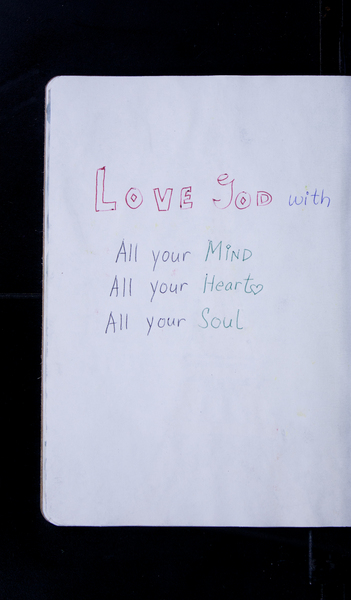 LOVE GOD with
All your MIND
All your Heart♡
All your Soul